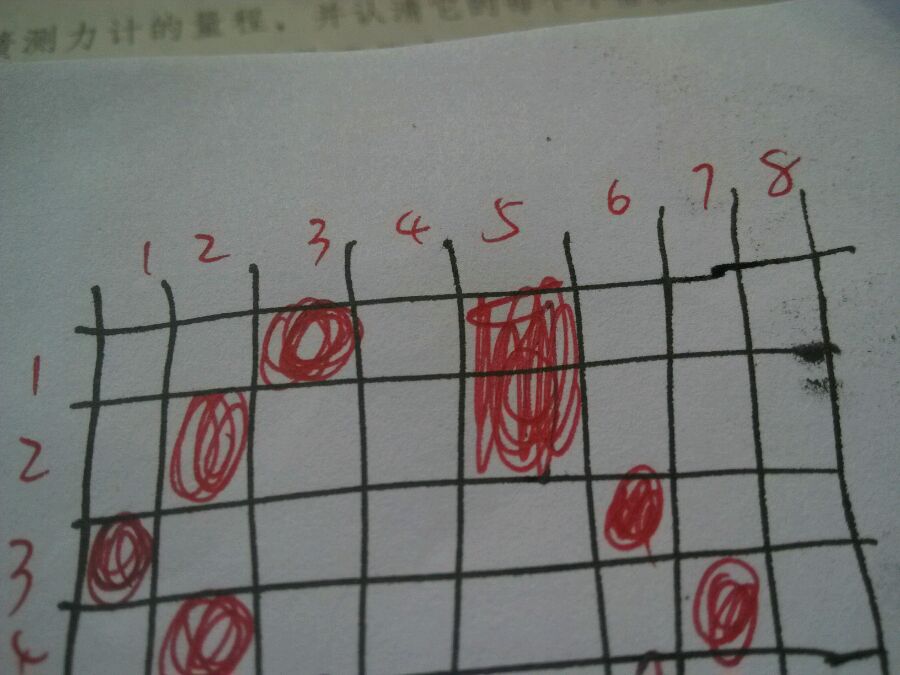 测力计的量程，并认清它的每个小
1 2 3 4 5 6 7 8
1
2
3
4